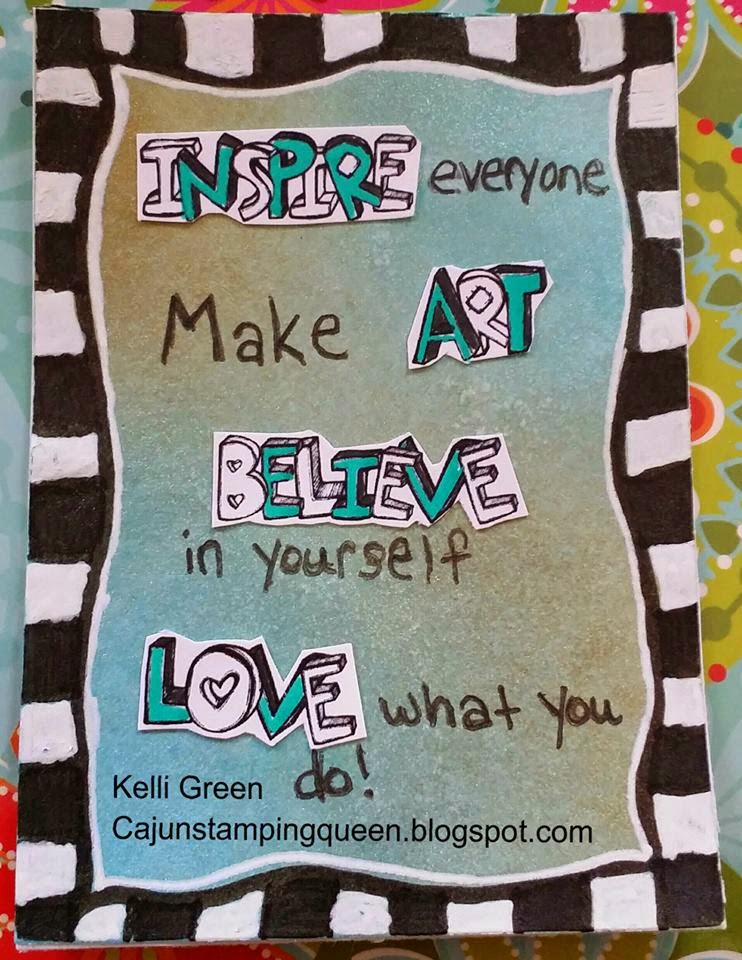 INSPIRE everyone
Make ART
BELIEVE
in yourself
LOVE what you
do!
Kelli Green
Cajunstampingqueen.blogspot.com